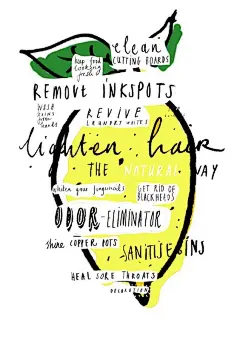 clean
keep food looking fresh
CUTTING BOARDS
REMOVE INKSPOTS
REVIVE
LAUNDRY WHITES
lighten hair
THE NATURAL WAY
whiten your fingernails
GET RID OF BLACKHEADS
ODOR-ELIMINATOR
shine COPPER POTS
SANITISE BINS
HEAL SORE THROATS
DECORATION